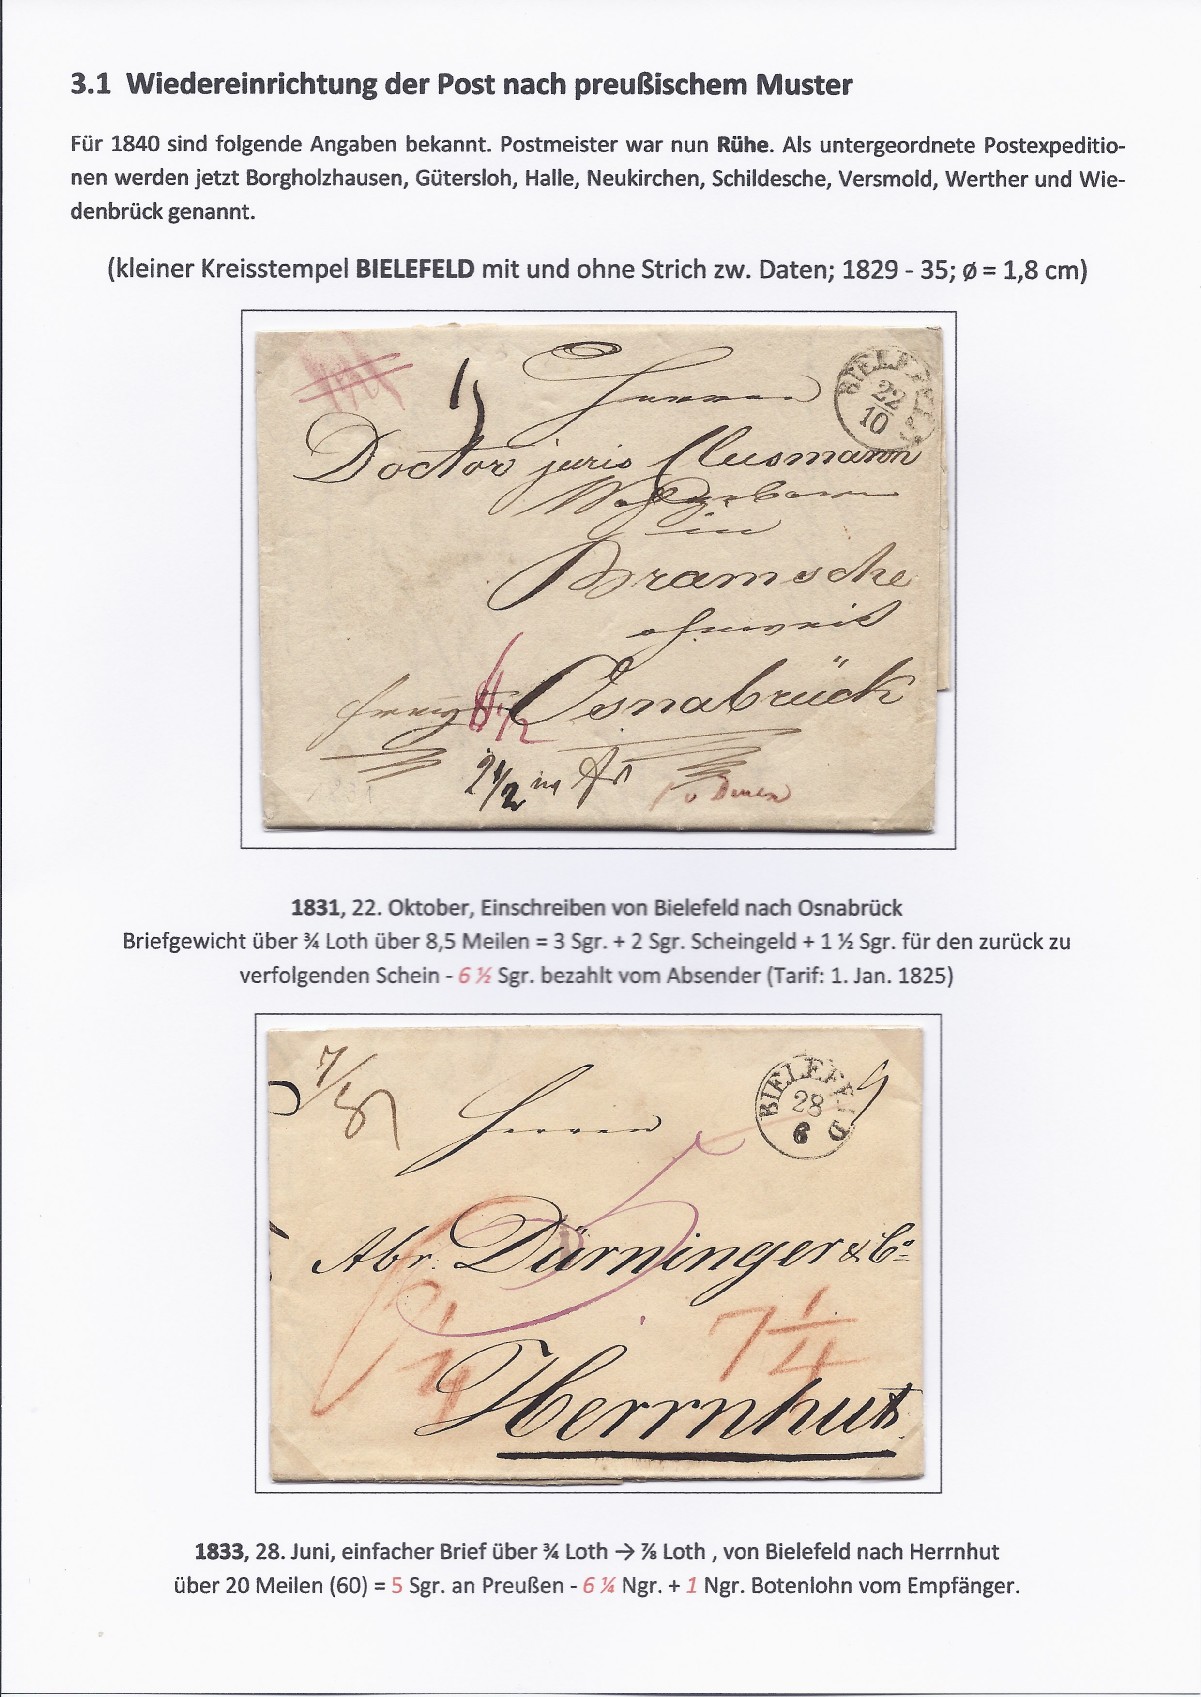 3.1 Wiedereinrichtung der Post nach preußischem Muster
Für 1840 sind folgende Angaben bekannt. Postmeister war nun Rühe. Als untergeordnete Postexpeditio-
nen werden jetzt Borgholzhausen, Gütersloh, Halle, Neukirchen, Schildesche, Versmold, Werther und Wie-
denbrück genannt.
(kleiner Kreisstempel BIELEFELD mit und ohne Strich zw. Daten; 1829 - 35; ø = 1,8 cm)
BIELEFELD
22
10
Herren
Doctor juris Clusmann
in
Bramsche
ohnweit
Osnabrück
6 1/2
2 1/2
1831, 22. Oktober, Einschreiben von Bielefeld nach Osnabrück
Briefgewicht über ¾ Loth über 8,5 Meilen = 3 Sgr. + 2 Sgr. Scheingeld + 1 ½ Sgr. für den zurück zu
verfolgenden Schein - 6 ½ Sgr. bezahlt vom Absender (Tarif: 1. Jan. 1825)
7/8
BIELEFELD
28
6
Herren
5
Abr. Dürninger & Co
6 1/4
7 1/4
Herrnhut
1833, 28. Juni, einfacher Brief über ¾ Loth → ⅞ Loth , von Bielefeld nach Herrnhut
über 20 Meilen (60) = 5 Sgr. an Preußen - 6 ¼ Ngr. + 1 Ngr. Botenlohn vom Empfänger.